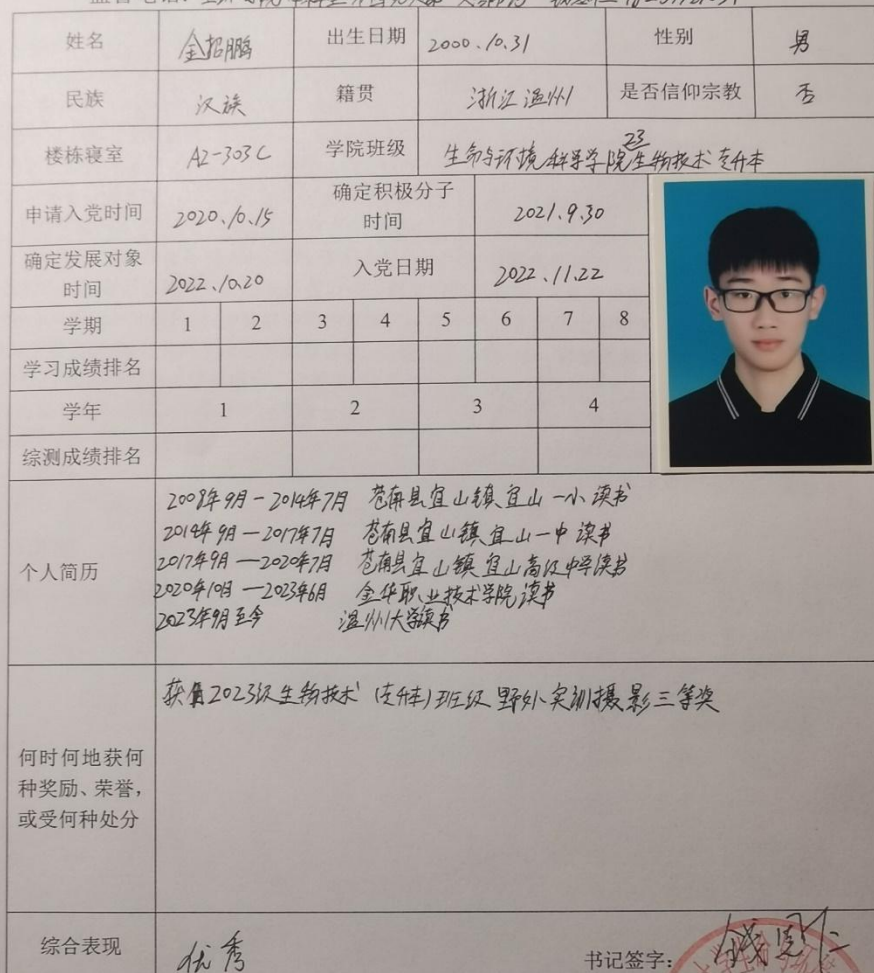 姓名 金招鹏 出生日期 2000.10.31 性别 男
民族 汉族 籍贯 浙江温州 是否信仰宗教 否
楼栋寝室 A2-303C 学院班级 生命与环境科学学院23生物技术专升本
申请入党时间 2020.10.15 确定积极分子时间 2021.9.30
确定发展对象时间 2022.10.20 入党日期 2022.11.22
学期 1 2 3 4 5 6 7 8
学习成绩排名
学年 1 2 3 4
综测成绩排名
个人简历
2008年9月-2014年7月 苍南县宜山镇宜山一小读书
2014年9月-2017年7月 苍南县宜山镇宜山一中读书
2017年9月-2020年7月 苍南县宜山镇宜山高级中学读书
2020年10月-2023年6月 金华职业技术学院读书
2023年9月至今 温州大学读书
何时何地获何
种奖励、荣誉，
或受何种处分
获2023级生物技术(专升本)班级野外实训摄影三等奖
综合表现 优秀 书记签字：